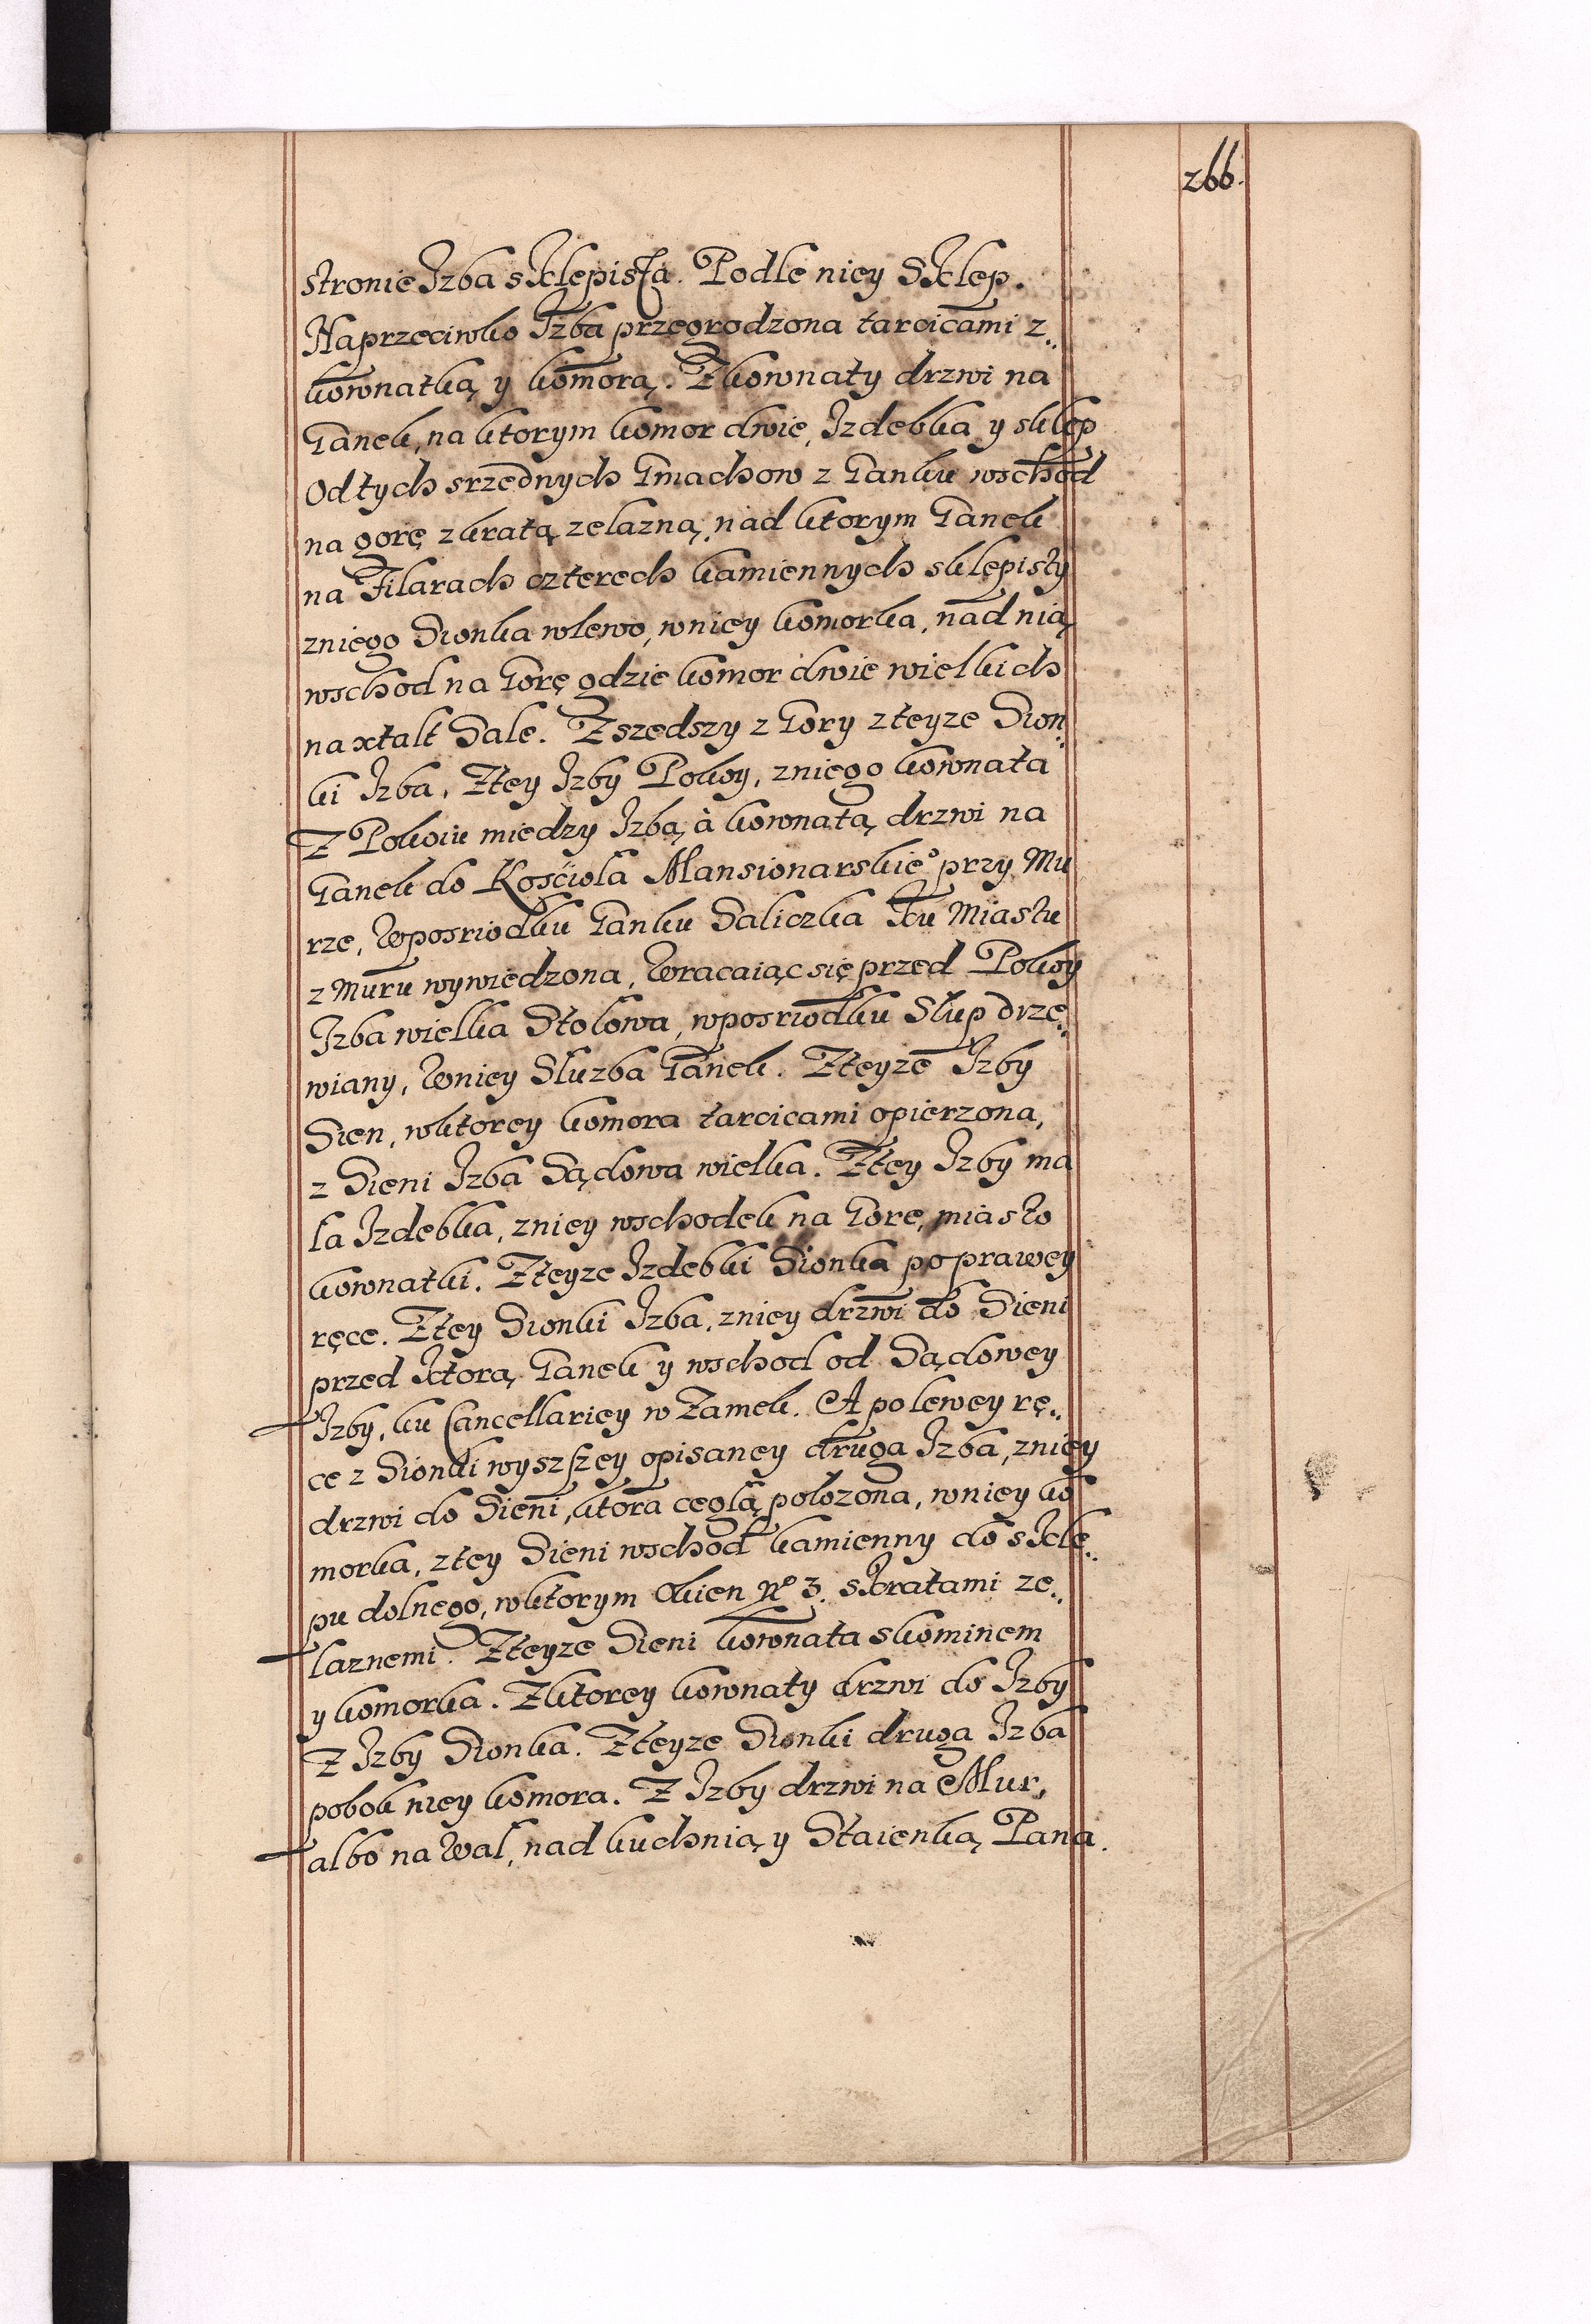 266.
stronie Izba sklepista. Podle niey Sklep.
Naprzeciwko Izba przegrodzona tarcicami z„
kownatką y komorą. Zkownaty drzwi na
Ganek, na ktorym komor dwie, Izdebka y sklep
Odtych srzednych Gmachow z Ganku wschod
na gorę zkratą zelazną, nad ktorym Ganek
na Filarach czterech kamiennych sklepisty
zniego Sionka wlewo, wniey komorka, nad nią
wschod na Gorę gdzie komor dwie wielkich
naxtalt Sale. Zszedszy z Gory zteyze Sion„
ki Izba. Ztey Izby Pokoy, zniego kownata
Z Pokoiu miedzy Izbą, à kownatą drzwi na
Ganek do Kościoła Mansionarskie° przy Mu
rze, Wposriodku Ganku Saliczka Ku Miastu
z Muru wywiedzona, Wracaiąc się przed Pokoy
Izba wielka Stołowa, wposriodku Słup drze„
wiany, Wniey Słuzba Ganek. Zteyze Izby
Sien, wktorey komora tarcicami opierzona,
z Sieni Izba Sądowa wielka. Ztey Izby ma
ła Izdebka, zniey wschodek na Gorę, miasto
kownatki. Zteyze Izdebki Sionka po prawey
ręce. Ztey Sionki Izba, zniey drzwi do Sieni
przed Ktorą Ganek y wschod od Sądowey
Izby, ku Cancellariey w Zamek. A po lewey rę„
ce z Sionki wyszszey opisaney druga Izba, zniey
drzwi do Sieni, ktora cegłą położona, wniey ko
morka, ztey Sieni wschod kamienny do skle„
pu dolnego, wktorym Okien N° 3. skratami ze„
laznemi. Zteyze Sieni kownata skominem
y komorka. Zktorey kownaty drzwi do Izby
Z Izby Sionka. Zteyze Sionki druga Izba
pobok niey komora. Z Izby drzwi na Mur,
albo na Wał, nad kuchnią y Staienką Pana.